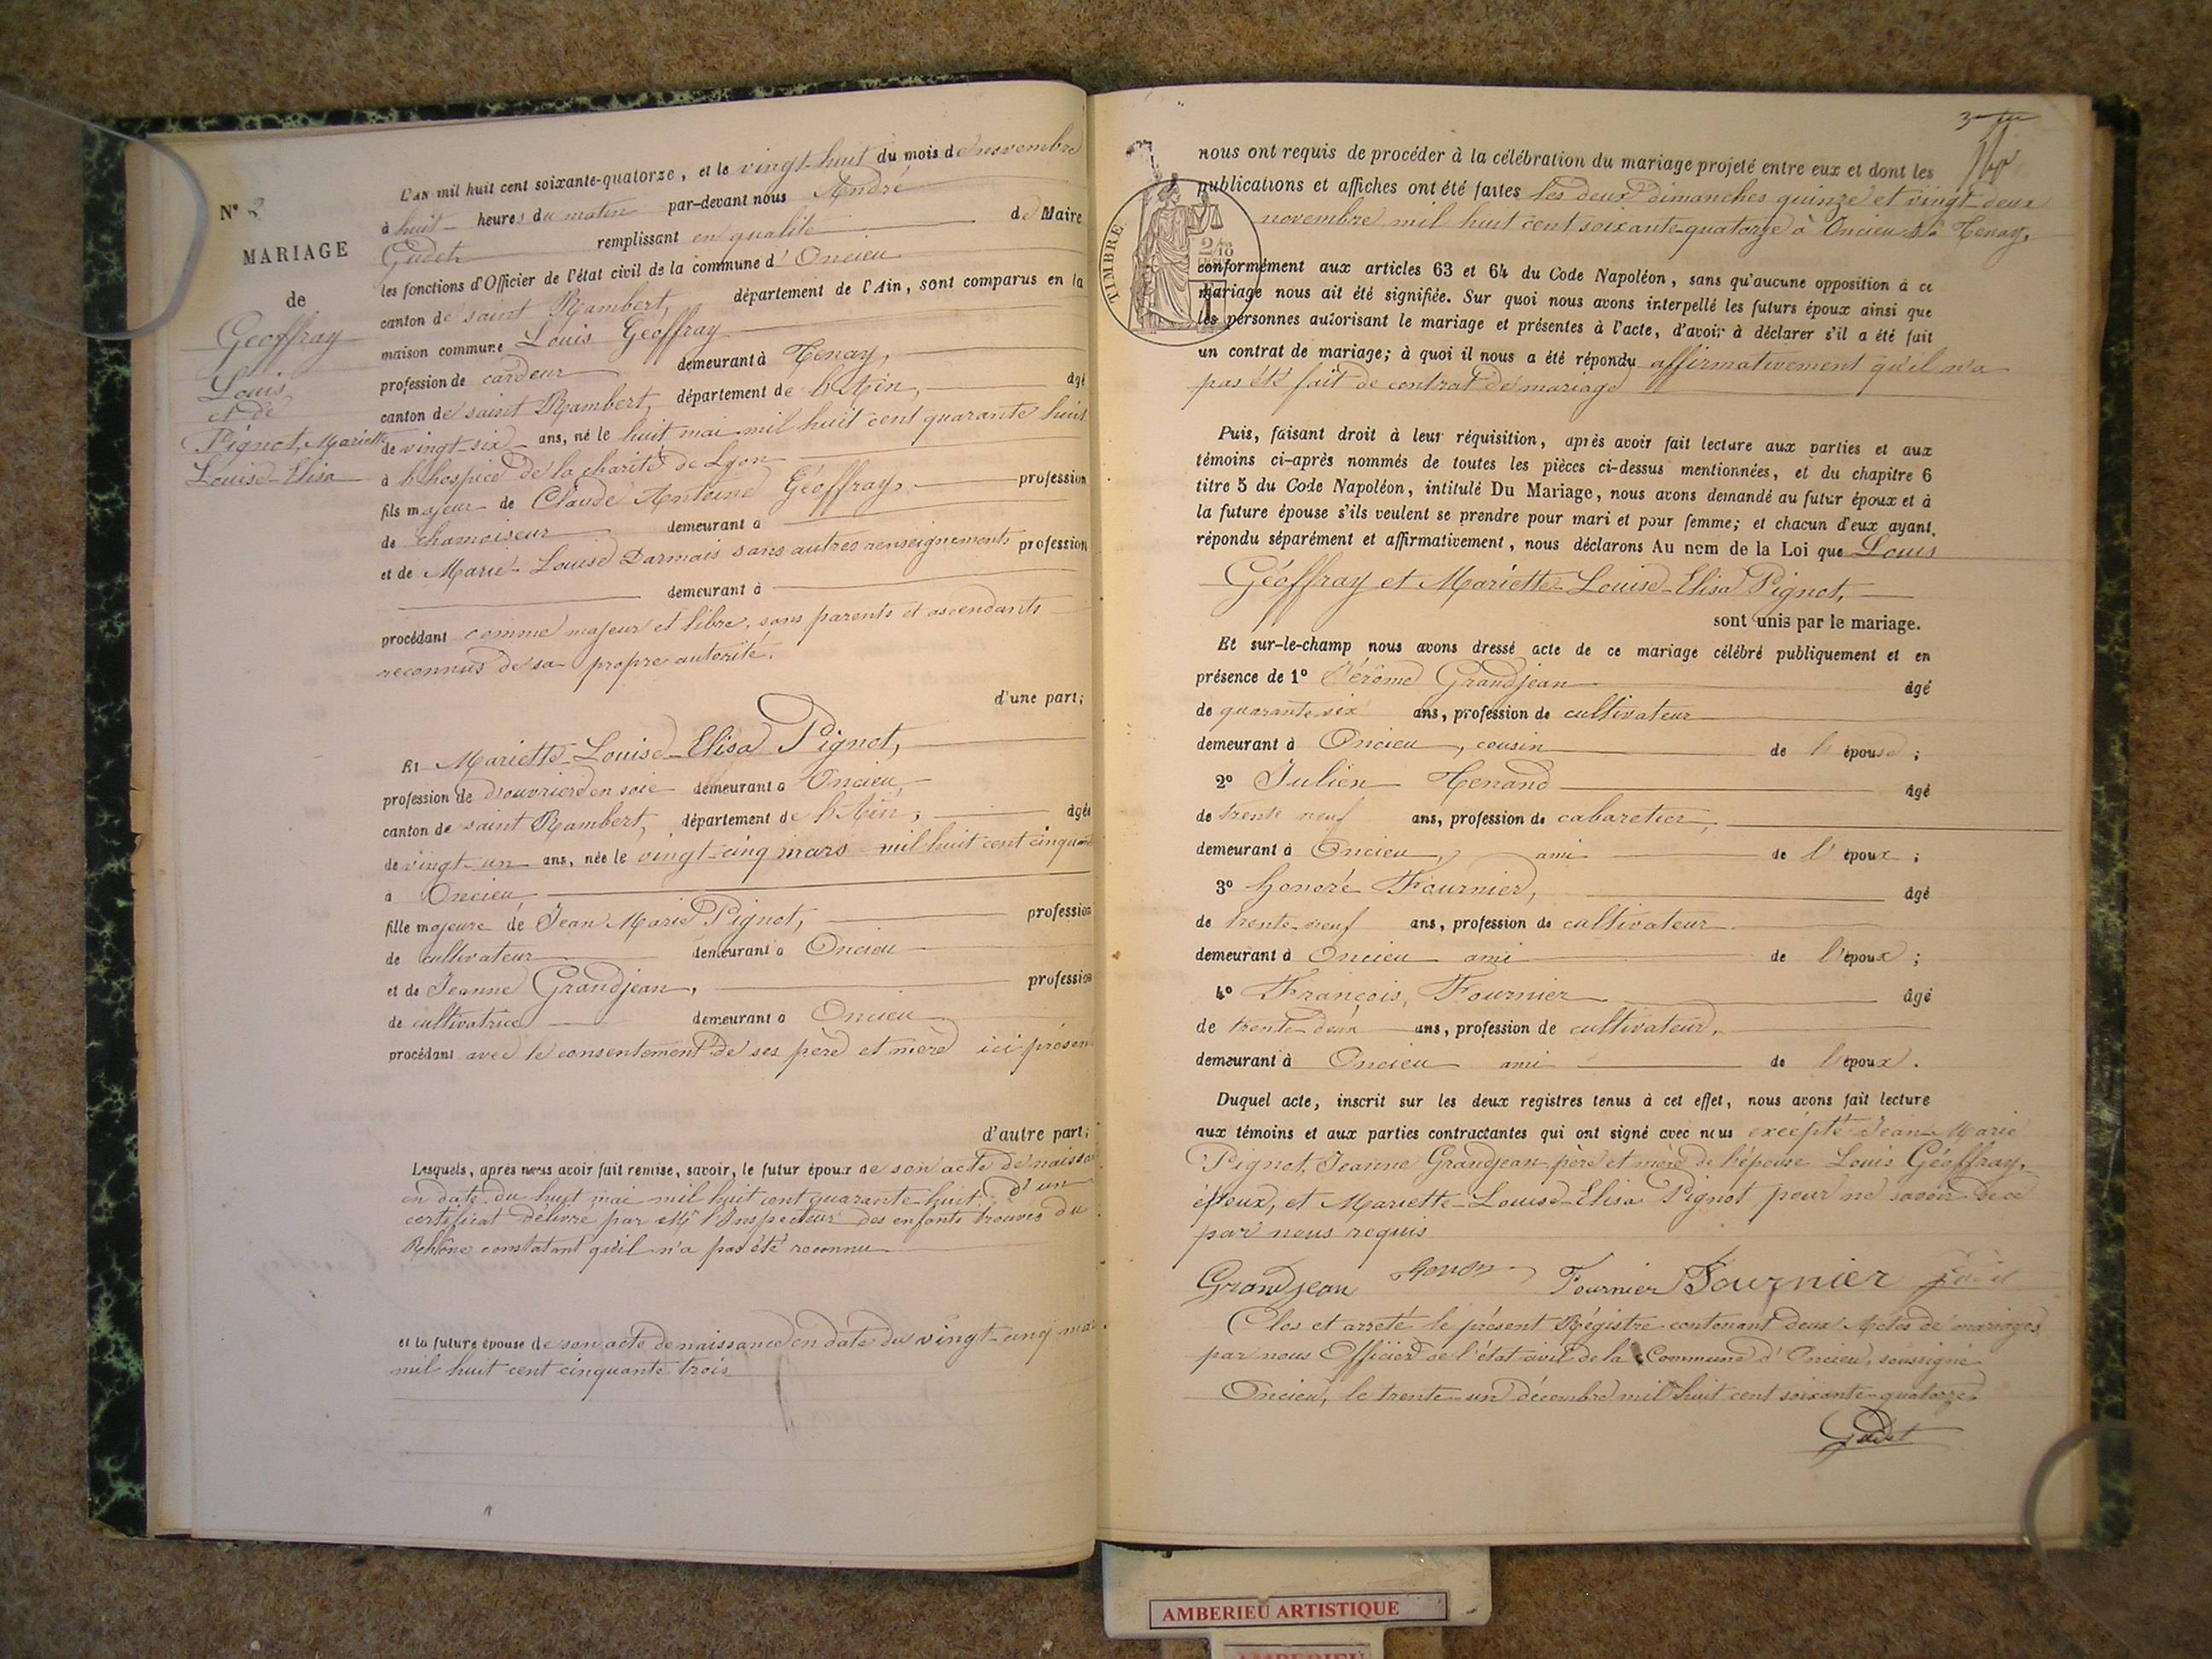 N° 2
MARIAGE
de
Geoffray
Louis
et de
Pignot, Mariette
Louise-Elisa
L'AN mil huit cent soixante-quatorze, et le vingt-huit du mois de novembre
à huit heures du matin par-devant nous André
Gudet remplissant en qualité de Maire
les fonctions d'Officier de l'état civil de la commune d'Oncieu
canton de saint Rambert, département de l'Ain, sont comparus en la
maison commune Louis Geoffray
profession de cardeur demeurant à Tenay,
canton de saint Rambert, département de l'Ain, âgé
de vingt-six ans, né le huit mai mil huit cent quarante huit
à l'hospice de la charité de Lyon
fils majeur de Claude Antoine Géoffray, profession
de chamoiseur demeurant à
et de Marie-Louise Darmais sans autres renseignements profession
demeurant à
procédant comme majeur et libre, sans parents et ascendants
reconnus de sa propre autorité.
d'une part;
Et Mariette-Louise-Elisa Pignot,
profession de d'ouvrière en soie demeurant à Oncieu,
canton de saint Rambert, département de l'Ain, âgée
de vingt-un ans, née le vingt-cinq mars mil huit cent cinquante
à Oncieu
fille majeure de Jean Marie Pignot, profession
de cultivateur demeurant à Oncieu
et de Jeanne Grandjean, profession
de cultivatrice demeurant à Oncieu
procédant avec le consentement de ses père et mère ici présen
d'autre part;
Lesquels, après nous avoir fait remise, savoir, le futur époux de son acte de naissa
en date du huit mai mil huit cent quarante-huit: d'un
certificat délivré par Mr l'Inspecteur des enfants trouvés du
Rhône constatant qu'il n'a pas été reconnu
et la future épouse de son acte de naissance en date du vingt-cinq mar
mil huit cent cinquante trois
nous ont requis de procéder à la célébration du mariage projeté entre eux et dont les
publications et affiches ont été faites les deux dimanches quinze et vingt-deux
novembre mil huit cent soixante-quatorze à Oncieu & à Tenay,
TIMBRE
2/10
conformément aux articles 63 et 64 du Code Napoléon, sans qu'aucune opposition à ce
mariage nous ait été signifiée. Sur quoi nous avons interpellé les futurs époux ainsi que
les personnes autorisant le mariage et présentes à l'acte, d'avoir à déclarer s'il a été fait
un contrat de mariage; à quoi il nous a été répondu affirmativement qu'il n'a
pas été fait de contrat de mariage
Puis, faisant droit à leur réquisition, après avoir fait lecture aux parties et aux
témoins ci-après nommés de toutes les pièces ci-dessus mentionnées, et du chapitre 6
titre 5 du Code Napoléon, intitulé Du Mariage, nous avons demandé au futur époux et à
la future épouse s'ils veulent se prendre pour mari et pour femme; et chacun d'eux ayant
répondu séparément et affirmativement, nous déclarons Au nom de la Loi que Louis
Géoffray et Mariette-Louise-Elisa Pignot,
sont unis par le mariage.
Et sur-le-champ nous avons dressé acte de ce mariage célébré publiquement et en
présence de 1° Jérôme Grandjean âgé
de quarante-six ans, profession de cultivateur
demeurant à Oncieu, cousin de l'épouse;
2° Julien Tenand âgé
de trente neuf ans, profession de cabaretier,
demeurant à Oncieu, ami de l'époux;
3° honoré Fournier, âgé
de trente-neuf ans, profession de cultivateur
demeurant à Oncieu ami de l'époux;
4° François, Fournier âgé
de trente-deux ans, profession de cultivateur,
demeurant à Oncieu ami de l'époux.
Duquel acte, inscrit sur les deux registres tenus à cet effet, nous avons fait lecture
aux témoins et aux parties contractantes qui ont signé avec nous excépté Jean-Marie
Pignot, Jeanne Grandjean père et mère de l'épouse Louis Géoffray,
époux, et Mariette-Louise-Elisa Pignot pour ne savoir de ce
par nous requis
Grandjean Fournier Fournier Gudet
Clos et arrêté le présent Régistre contenant deux Actes de mariages
par nous Officier de l'état civil de la Commune d'Oncieu, soussigné
Oncieu, le trente-un décembre mil huit cent soixante-quatorze
Gudet
AMBERIEU ARTISTIQUE
AMBERIEU